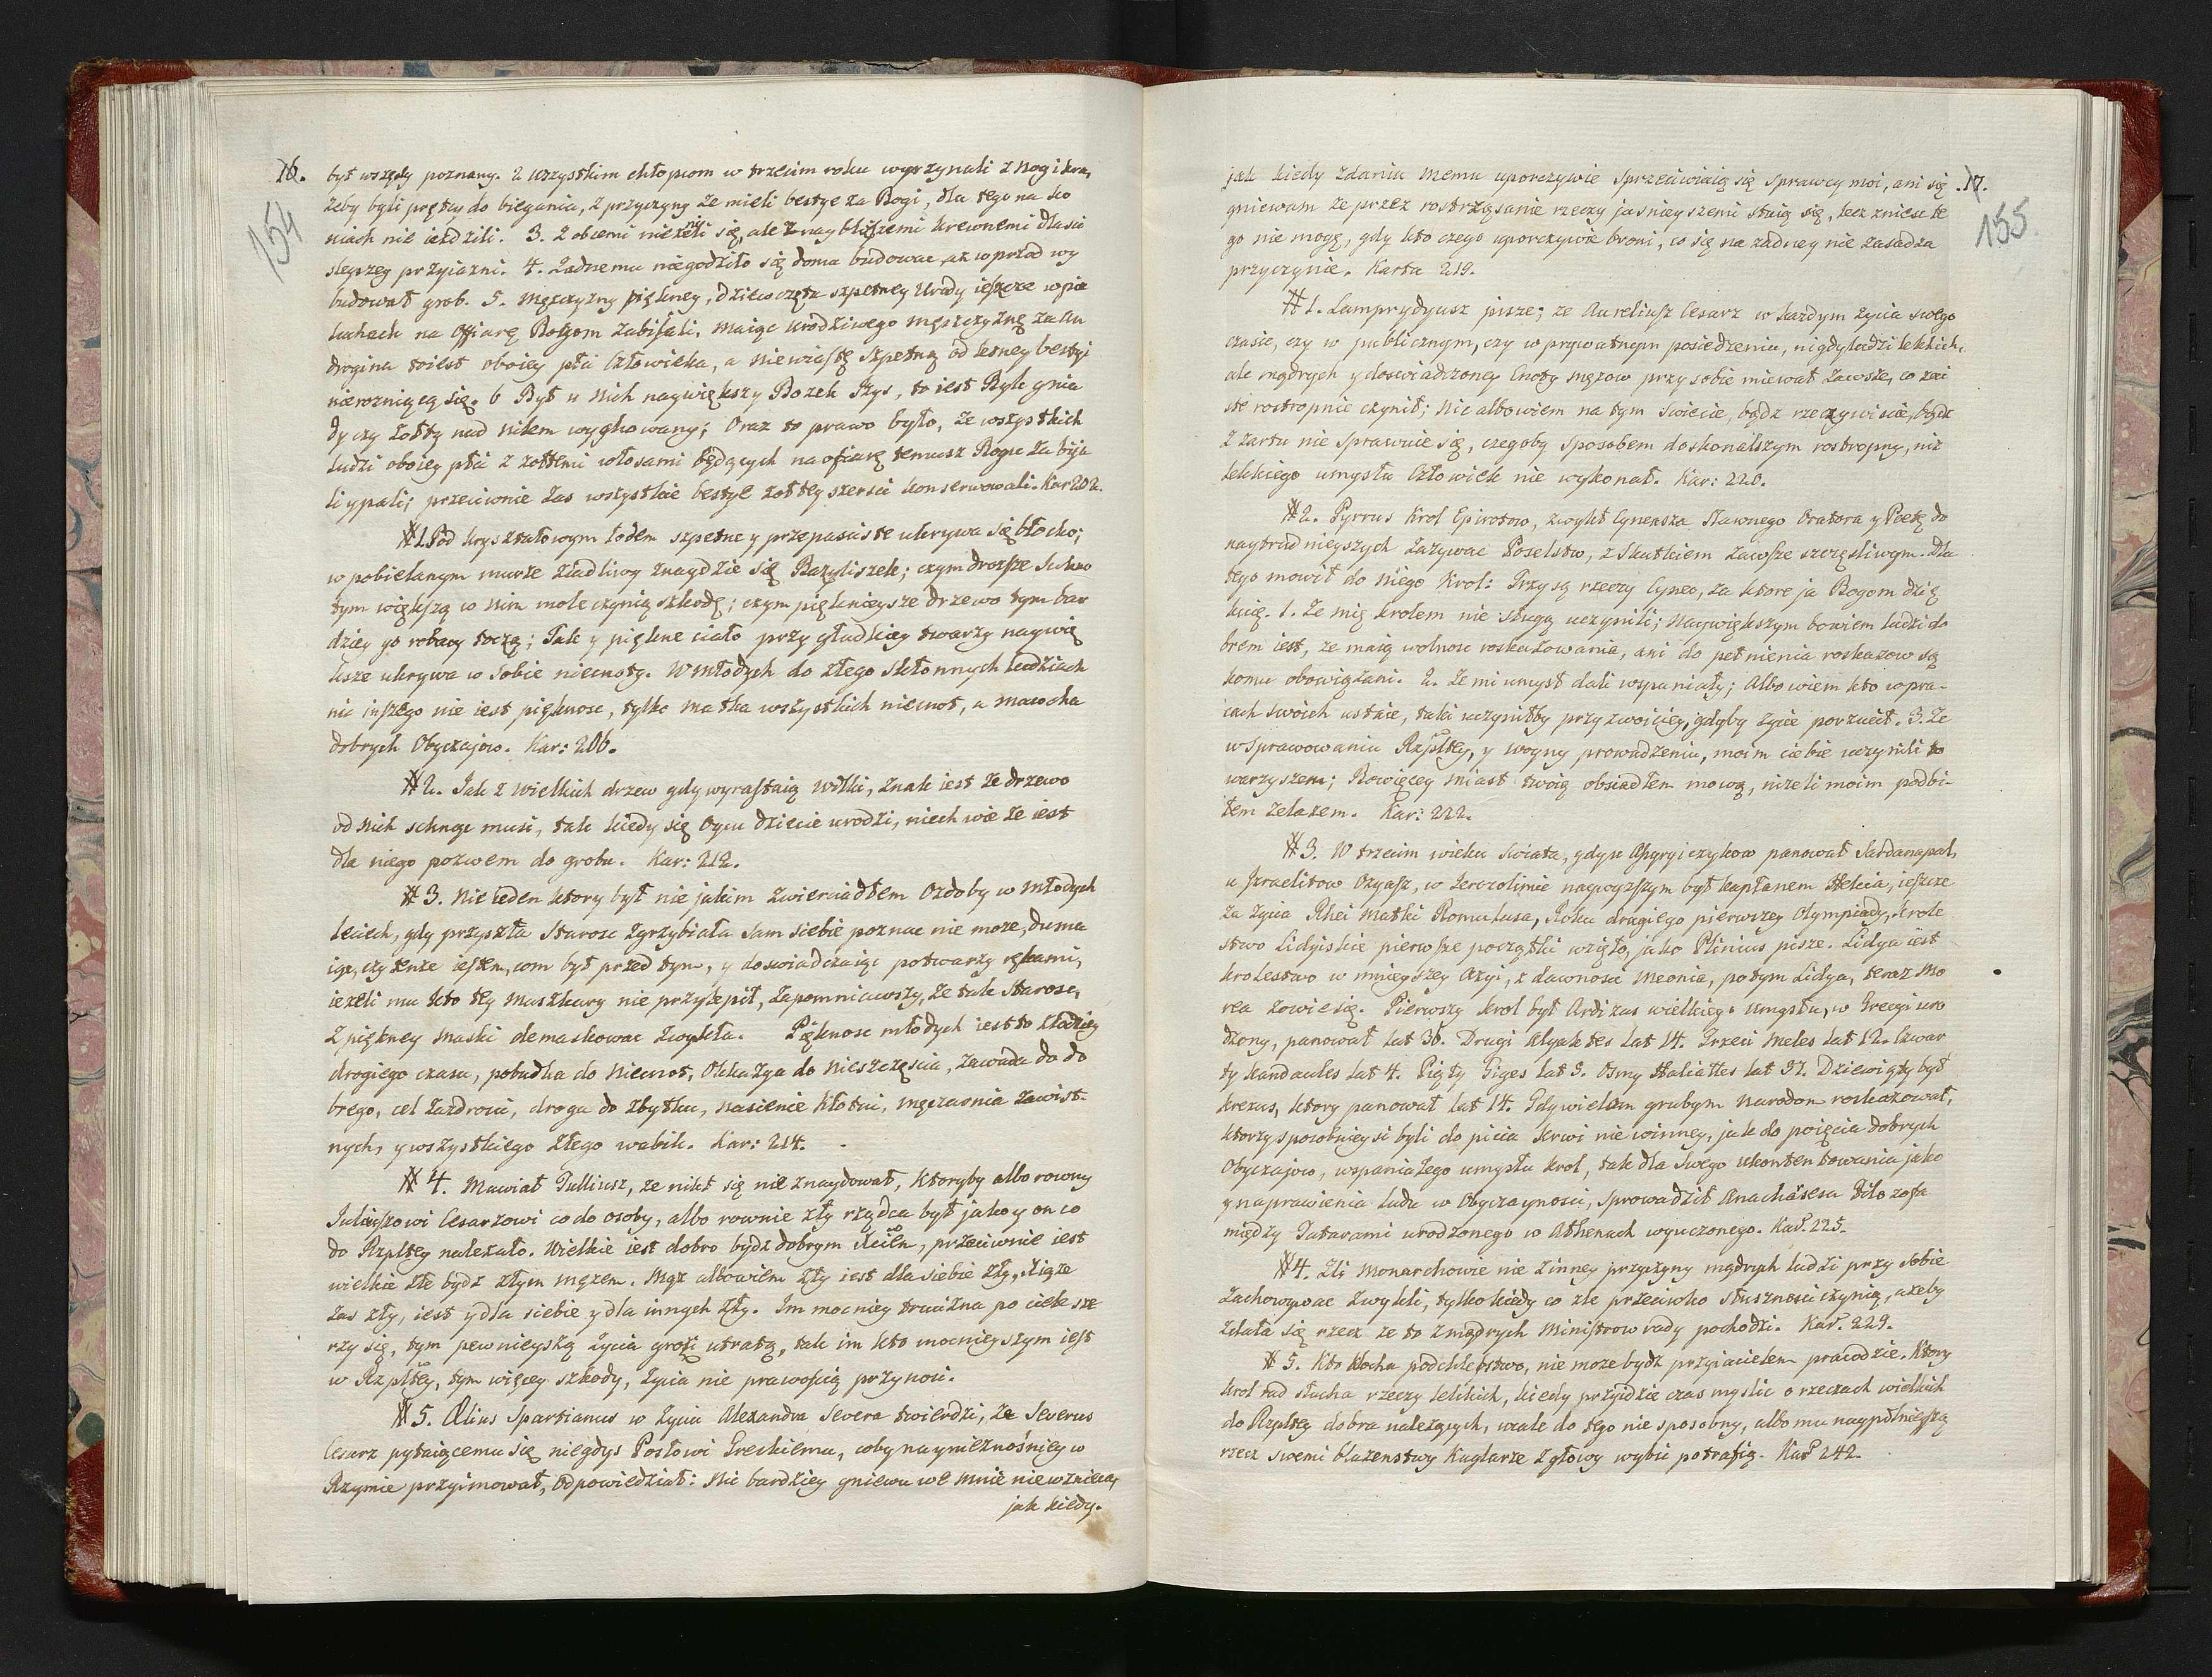 16.
154
był wszędy poznany. 2 wszystkim chłopiom w trzecim roku wyrzynali z Nog ikra,
żeby byli prętcy do biegania, z przyczyny że mieli bestye za Bogi, dla tego na ko
niach nie ieździli. 3. Z obcemi nieżenili się, ale z naybliższemi krewnemi dla sci
sleyszey przyiazni. 4. Żadnemu niegodziło się domu budować, aż wprzod wy
budował grob. 5. Męszczyzny piękney, dziewczęta szpetney Urody ieszcze w pie
luchach na Offiarę Bogom zabijali, maiąc urodziwego męszczyznę za An
drogina toiest oboiey płci Człowieka, a niewiastę szpetną od lesney bestyi
nierozniącą się. 6 Był u nich naywiększy Bożek Izys, to iest Byk gnia
dy czy żółty nad Nilem wychowany; Oraz to prawo było, że wszystkich
ludzi oboiey płci z żołtemi włosami będących na ofiarę temusz Bogu zabija
li y pali; przeciwnie zas wszystkie bestye żołtey szersci konserwowali. Kar 202.
# 1. Pod krysztalowym lodem szpetne y przepasciste ukrywa się błocko;
w pobielanym murze zdradliwy znaydzie się Bazyliszek; czym drozsze Sukno
tym większą w nim mole czynią szkodę; czym pięknieysze drzewo tym bar
dziey go robacy toczą; Tak y piękne ciało przy gładkiey twarzy naywię
ksze ukrywa w sobie niecnoty. W młodych do złego skłonnych ludziach
nic inszego nie iest piękność, tylko matka wszystkich niecnot, a macocha
dobrych Obyczajow. Kar: 206.
# 2. Jak z wielkich drzew gdy wyrastaią wilki, znak iest że drzewo
od nich schnąć musi, tak kiedy się Oycu dziecie urodzi, niech wie że iest
dla niego pozwem do grobu. Kar: 212.
# 3. Nie ieden ktory był nie jakim zwierciadłem Ozdoby w młodych
leciech, gdy przyszła starosc zgrzybiała sam siebie poznac nie moze, duma
iąc, czy tenże iestem, com był przed tym, y doswiadczaiąc po twarzy rękami,
ieżeli mu kto tey maszkary nie przylepił, zapomniawszy, że tak starosc,
z piękney maski demaskowac zwykła. Piękność młodych iest to złodziey
drogiego czasu, pobudka do Niecnot, Okkazya do nieszczęścia, zawada do do
brego, cel zazdrosci, droga do zbytku, nasienie kłotni, męczarnia zawist-
nych, y wszystkiego złego wabik. Kar: 214.
# 4. Mawiał Tulliusz, ze nikt się nie znaydował, ktoryby albo rowny
Juliuszowi Cesarzowi co do osoby, albo rownie zły rządca był jako y on co
do Rzpltey należało. Wielkie iest dobro bydz dobrym, przeciwnie iest
wielkie złe bydz złym mężem. Mąż albowiem zły iest dla siebie zły, Xiąże
zas zły, iest y dla siebie y dla innych zły. Im mocniey trucizna po ciele sze
rzy się, tym pewnieyszą życia grozi utratą, tak im kto mocnieyszym iest
w Rzpltey, tym więcey szkody, życia nie prawością przynosi.
# 5. Ælius Spartianus w życiu Alexandra Severa twierdzi, że Severus
Cesarz pytaiącemu się niegdys Posłowi Greckiemu, coby nayniéznośniey w
Rzymie przyimował, odpowiedział: Nic bardziey gniewu we mnie nie wznieca,
jak kiedy.
17.
155
jak kiedy zdaniu memu uporczywie sprzeciwiaią się sprawcy moi, ani się
gniewam że przez rostrząsanie rzeczy jasnieyszemi staią się, lecz zniesc te
go nie mogę, gdy kto czego uporczywie broni, co się na żadney nie zasadza
przyczynie. Karta 219.
# 1. Lamprydyusz pisze; ze Aureliusz Cesarz w każdym życia swego
czasie, czy w publicznym, czy w prywatnym posiedzeniu, nigdy ludzi lekkich,
ale mądrych y doswiadczoney Cnoty mężow przy sobie miewał zawsze, co zai
ste rostropnie czynił; Nic albowiem na tym swiecie, bądz rzeczywiscie, bądz
z żartu nie sprawuie się, czegoby sposobem doskonalszym rostropny, niż
lekkiego umysłu Człowiek nie wykonał. Kar: 220.
# 2. Pyrrus Krol Epirotow, zwykł Cyneasza sławnego Oratora y Poetę do
naytrudnieyszych zażywac Poselstw, z skutkiem zawsze szczęsliwym. Dla
tego mowił do niego Krol: Trzy są rzeczy Cyneo, za ktore ja Bogom dzię
kuię. 1. Że mię krolem nie sługą uczynili; Naywiększym bowiem ludzi do
brem iest, ze maią wolnosc roskazowania, ani do pełnienia roskazow są
komu obowiązani. 2. Że mi umysł dali wspaniały; Albowiem kto w pra-
cach swoich ustaie, taki uczyniłby przyzwoiciey, gdyby życie porzucił. 3. Że
w sprawowaniu Rzpltey, y woyny prowadzeniu, moim ciebie uczynili to
warzyszem; Bo więcey miast twoią obsiadłem mową, niżeli moim podbi-
łem żelazem. Kar: 222.
# 3. W trzecim wieku swiata, gdy u Assyryiczykow panował Sardanapal,
u Izraelitow Ozyasz, w Jerozolimie naywyzszym był kapłanem Helcia, ieszcze
za życia Rhei matki Romulusa, Roku drugiego pierwszey Olympiady, krole
stwo Lidyiskie pierwsze początki wzięło, jako Plinius pisze. Lidya iest
krolestwo w mnieyszey Azyi, z dawnosci Meonia, potym Lidya, teraz Mo
rea zowie się. Pierwszy krol był Ardizas wielkiego umysłu, w Grecyi uro
dzony, panował lat 36. Drugi Alyaktes lat 14. Trzeci Meles lat 12. Czwar
ty Kandaules lat 4. Piąty Giges lat 5. Osmy Haliattes lat 37. Dziewiąty był
Krezus, ktory panował lat 14. Gdy wielom grubym Narodom roskazował,
ktorzy sposobnieysi byli do picia krwi niewinney, jak do poięcia dobrych
Obyczajow, wspaniałego umysłu krol, tak dla swego ukontentowania jako
y naprawienia ludu w Obyczayności, sprowadził Anacharsesa Filozofa
między Tatarami urodzonego w Athenach wyuczonego. Kar. 225.
# 4. Zli Monarchowie nie z inney przyczyny mądrych ludzi przy sobie
zachowywac zwykli, tylko kiedy co złe przeciwko słuszności czynią, ażeby
zdała się rzecz że to z mądrych Ministrow rady pochodzi. Kar. 229.
# 5. Kto kocha podchlebstwo, nie może bydz przyiacielem prawdzie. Ktory
krol rad słucha rzeczy lekkich, kiedy przyidzie czas myslic o rzeczach wielkich
do Rzpltey dobra należących, wcale do tego nie sposobny, albo mu naypilnieyszą
rzecz swemi błazenstwy Kuglarze z głowy wybic potrafią. Kar 242.